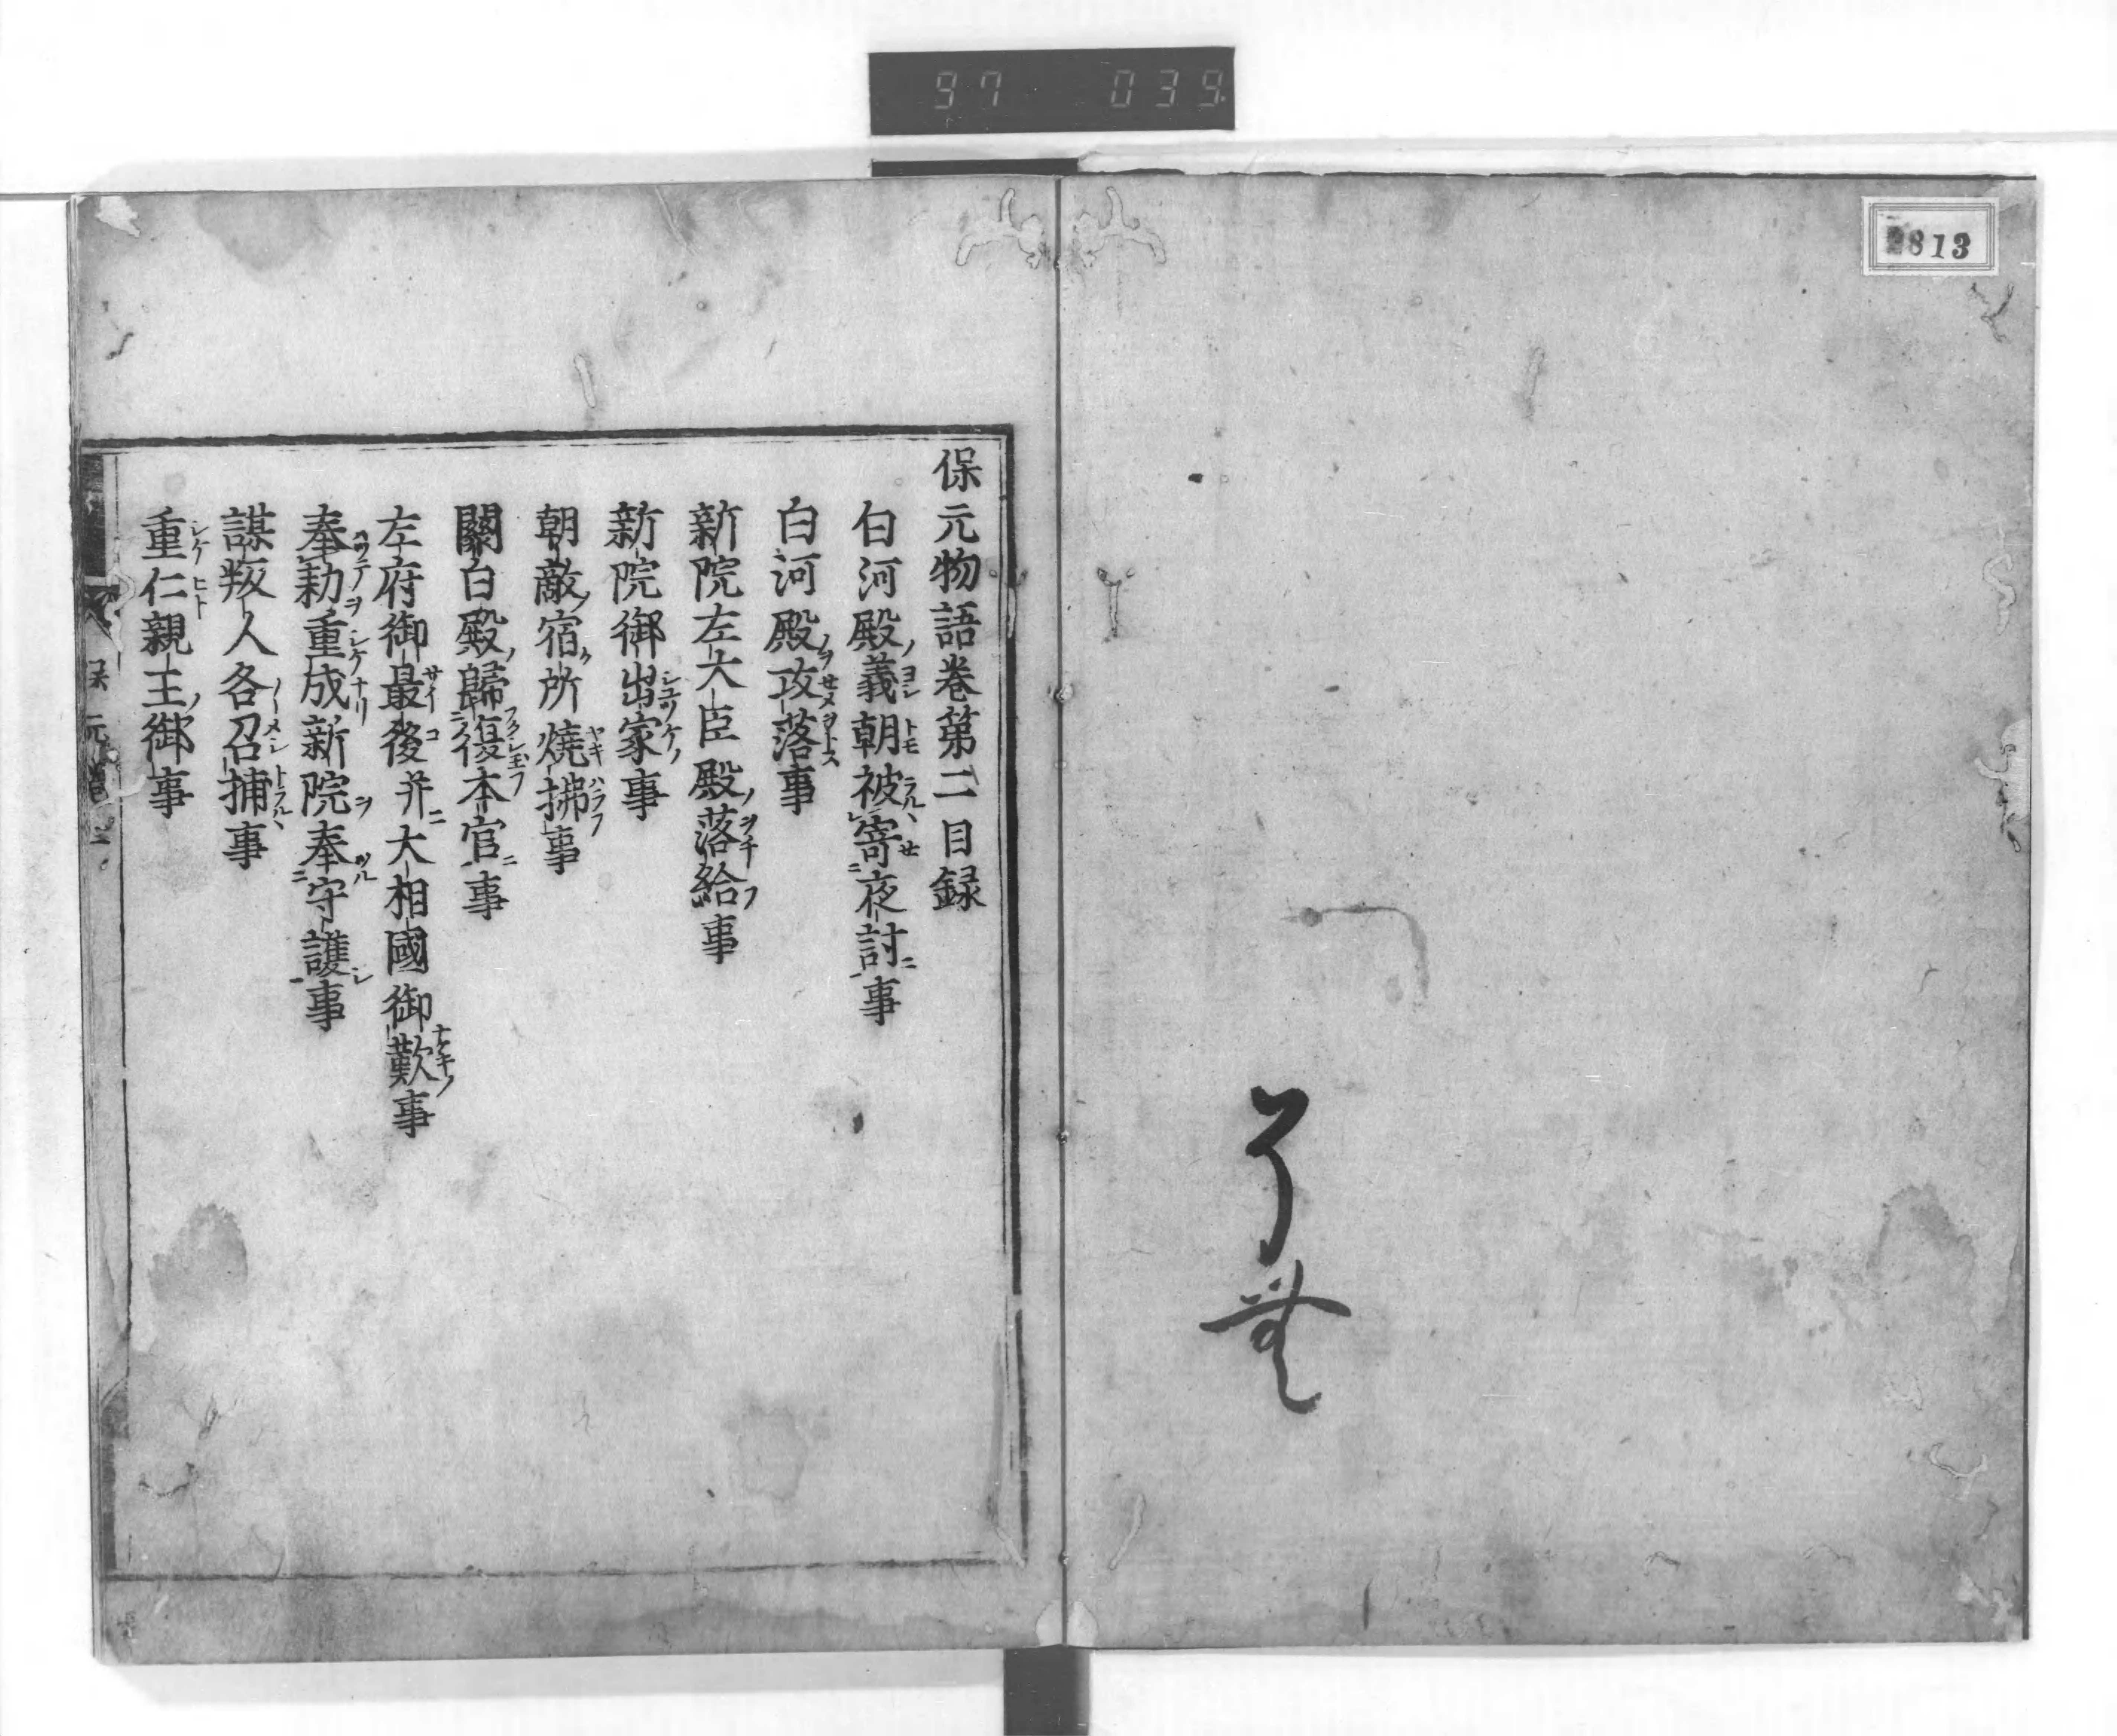 97 039
813
保元物語巻第二目録
白河殿義朝被寄夜討事
白河殿攻落事
新院左大臣殿落給事
新院御出家事
朝敵宿所焼拂事
關白殿歸復本官事
左府御最後并大相國御歎事
奉勅重成新院奉守護事
謀叛人各召捕事
重仁親王御事